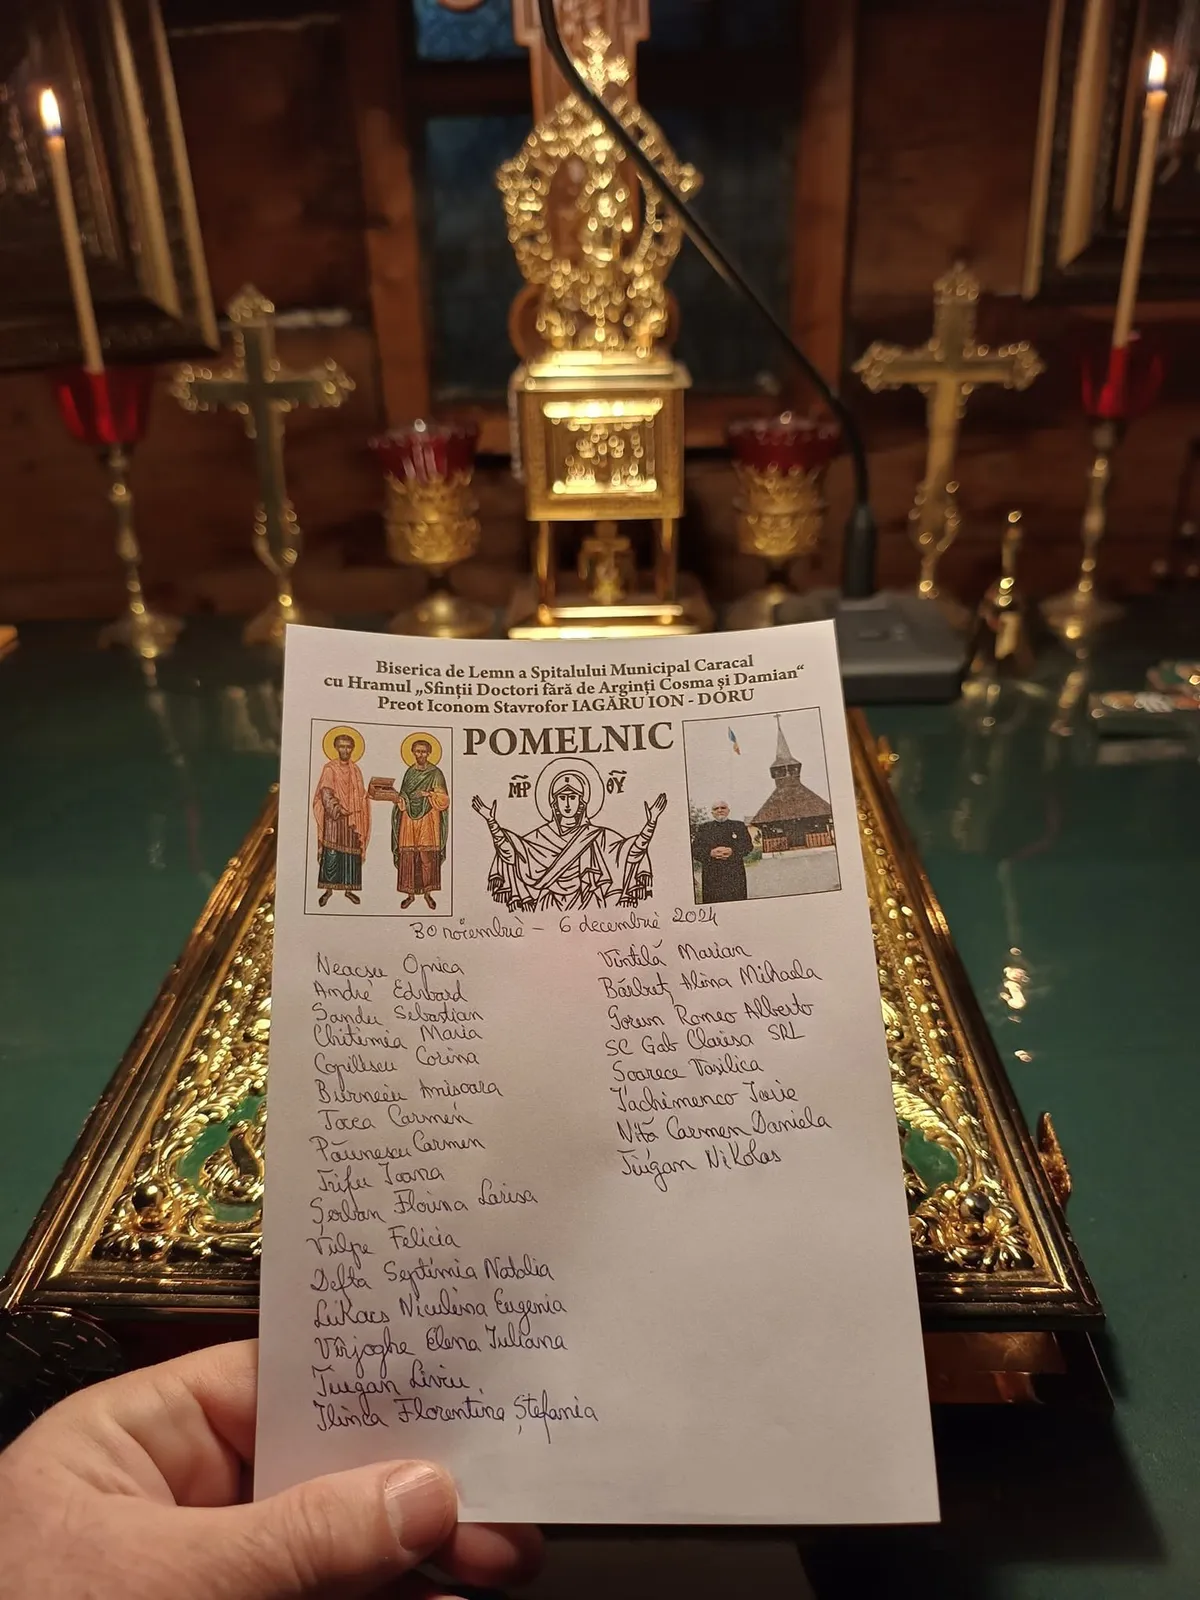 Biserica de Lemn a Spitalului Municipal Caracal
cu Hramul „Sfinții Doctori fără de Arginți Cosma și Damian“
Preot Iconom Stavrofor IAGĂRU ION - DORU
POMELNIC
MP ΘΥ
30 noiembrie - 6 decembrie 2024
Neacșu Oprica
Andre Eduard
Sandu Sebastian
Chitimia Maria
Copilescu Corina
Burneciu Anisoara
Tocea Carmen
Păunescu Carmen
Trifu Ioana
Șerban Florina Larisa
Vulpe Felicia
Defta Septimia Natalia
Lukacs Niculina Eugenia
Vîrjoghe Elena Iuliana
Țiugan Liviu
Ilinca Florentina Ștefania
Vintilă Marian
Bărbuț Alina Mihaela
Gorun Romeo Alberto
SC Gab Clarisa SRL
Soarece Vasilica
Iachimenco Iurie
Niță Carmen Daniela
Țiugan Nikolas